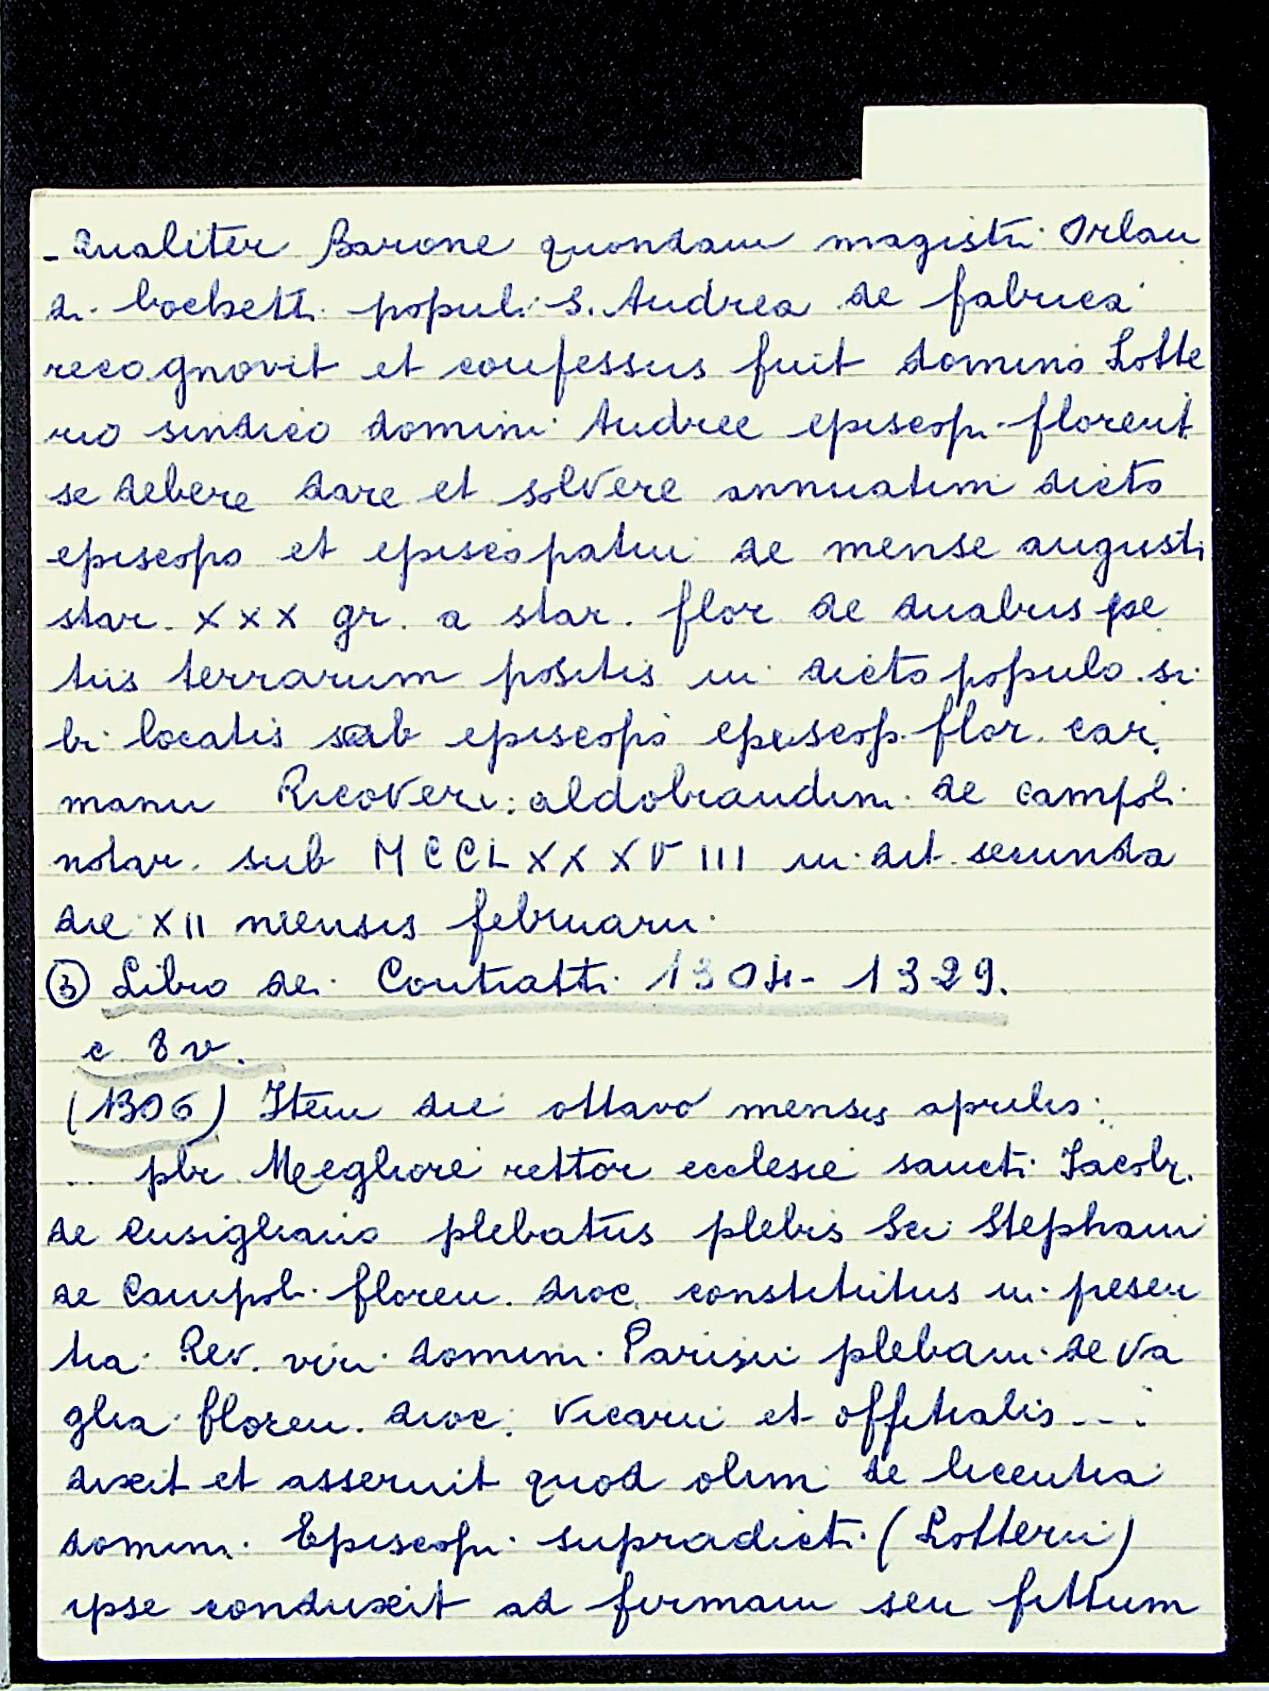 - Qualiter Barone quondam magistri Orlan
di Bochetti populi S. Andrea de fabrica
recognovit et confessus fuit domino Lotte
rio sindico domini Andree episcopi florent.
se debere dare et solvere annuatim dicto
episcopo et episcopatui de mense augusti
star. XXX gr. a star. flor. de duabus pe
tiis terrarum positis in dicto populo si
bi locatis sub episcopo episcop. flor. car.
manu Ricoveri aldobrandini de campoli
notar. sub MCCLXXXVIII indit. secunda
die XII mensis februarii.
③ Libro dei Contratti 1304-1329.
c. 8 v.
(1306) Item die ottavo mensis aprilis:
... pbr Megliore rettor ecclesie sancti Iacobi
de Cusigliano plebatus plebis Sci Stephani
de Campoli floren. dioc. constitutus in presen
tia Rev. viri domini Parisii plebani de Va
glia floren. dioc. vicarii et offitialis ....
dixit et asseruit quod olim de licentia
domini Episcopi supradicti (Lotterii)
ipse conduxit ad firmam seu fittum